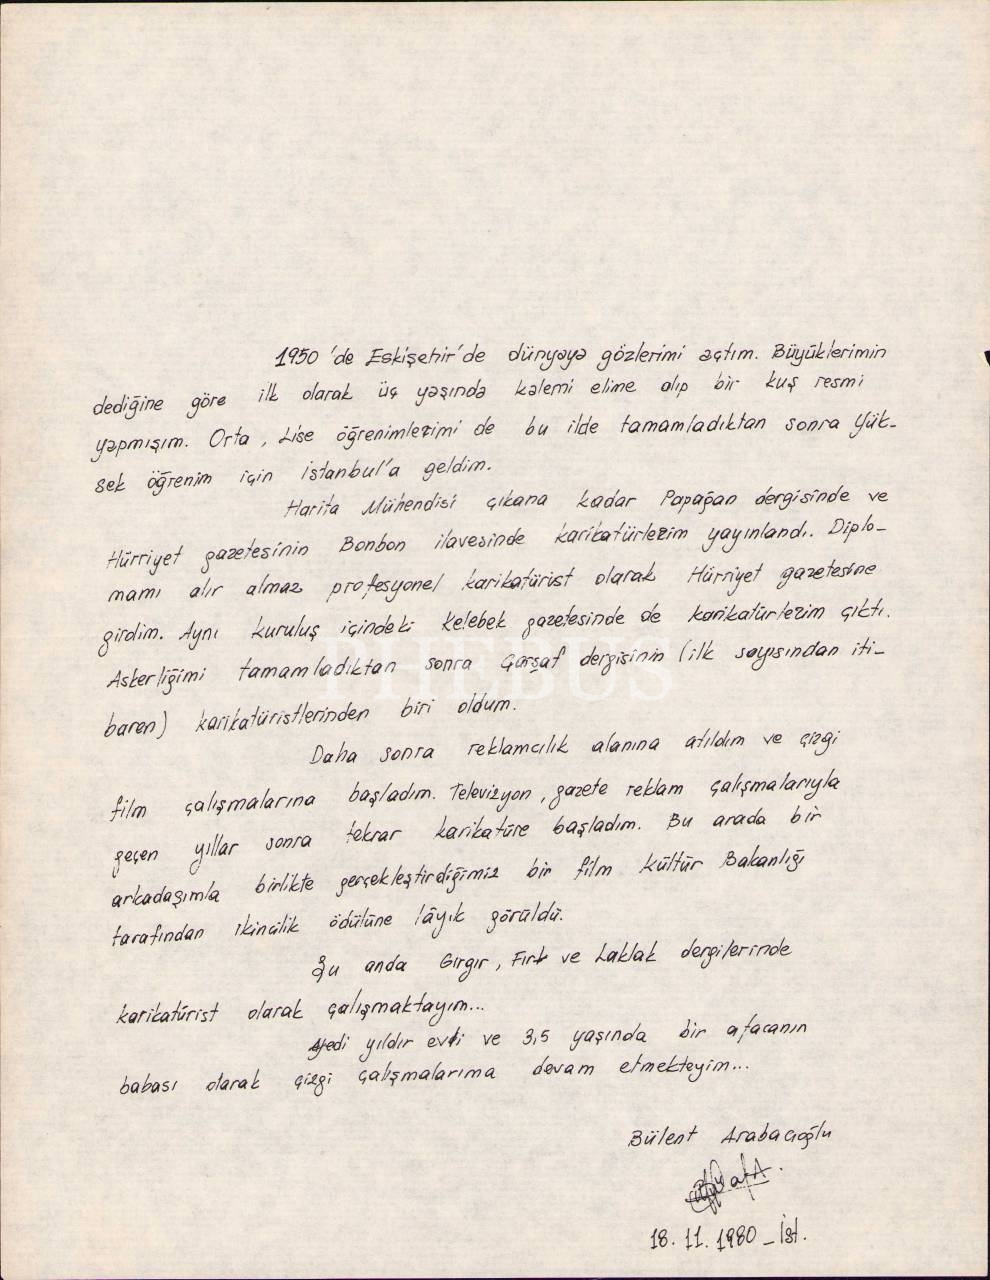 1950'de Eskişehir'de dünyaya gözlerimi açtım. Büyüklerimin
dediğine göre ilk olarak üç yaşında kalemi elime alıp bir kuş resmi
yapmışım. Orta, Lise öğrenimlerimi de bu ilde tamamladıktan sonra Yük-
sek öğrenim için İstanbul'a geldim.
Harita Mühendisi çıkana kadar Papağan dergisinde ve
Hürriyet gazetesinin Bonbon ilavesinde karikatürlerim yayınlandı. Diplo-
mamı alır almaz profesyonel karikatürist olarak Hürriyet gazetesine
girdim. Aynı kuruluş içindeki Kelebek gazetesinde de karikatürlerim çıktı.
Askerliğimi tamamladıktan sonra Çarşaf dergisinin (ilk sayısından iti-
baren) karikatüristlerinden biri oldum.
PHEBUS
Daha sonra reklamcılık alanına atıldım ve çizgi
film çalışmalarına başladım. Televizyon, gazete reklam çalışmalarıyla
geçen yıllar sonra tekrar karikatüre başladım. Bu arada bir
arkadaşımla birlikte gerçekleştirdiğimiz bir film Kültür Bakanlığı
tarafından ikincilik ödülüne lâyık görüldü.
Şu anda Gırgır, Fırt ve Laklak dergilerinde
karikatürist olarak çalışmaktayım...
Yedi yıldır evli ve 3,5 yaşında bir afacanın
babası olarak çizgi çalışmalarıma devam etmekteyim...
Bülent Arabacıoğlu
18.11.1980 - İst.